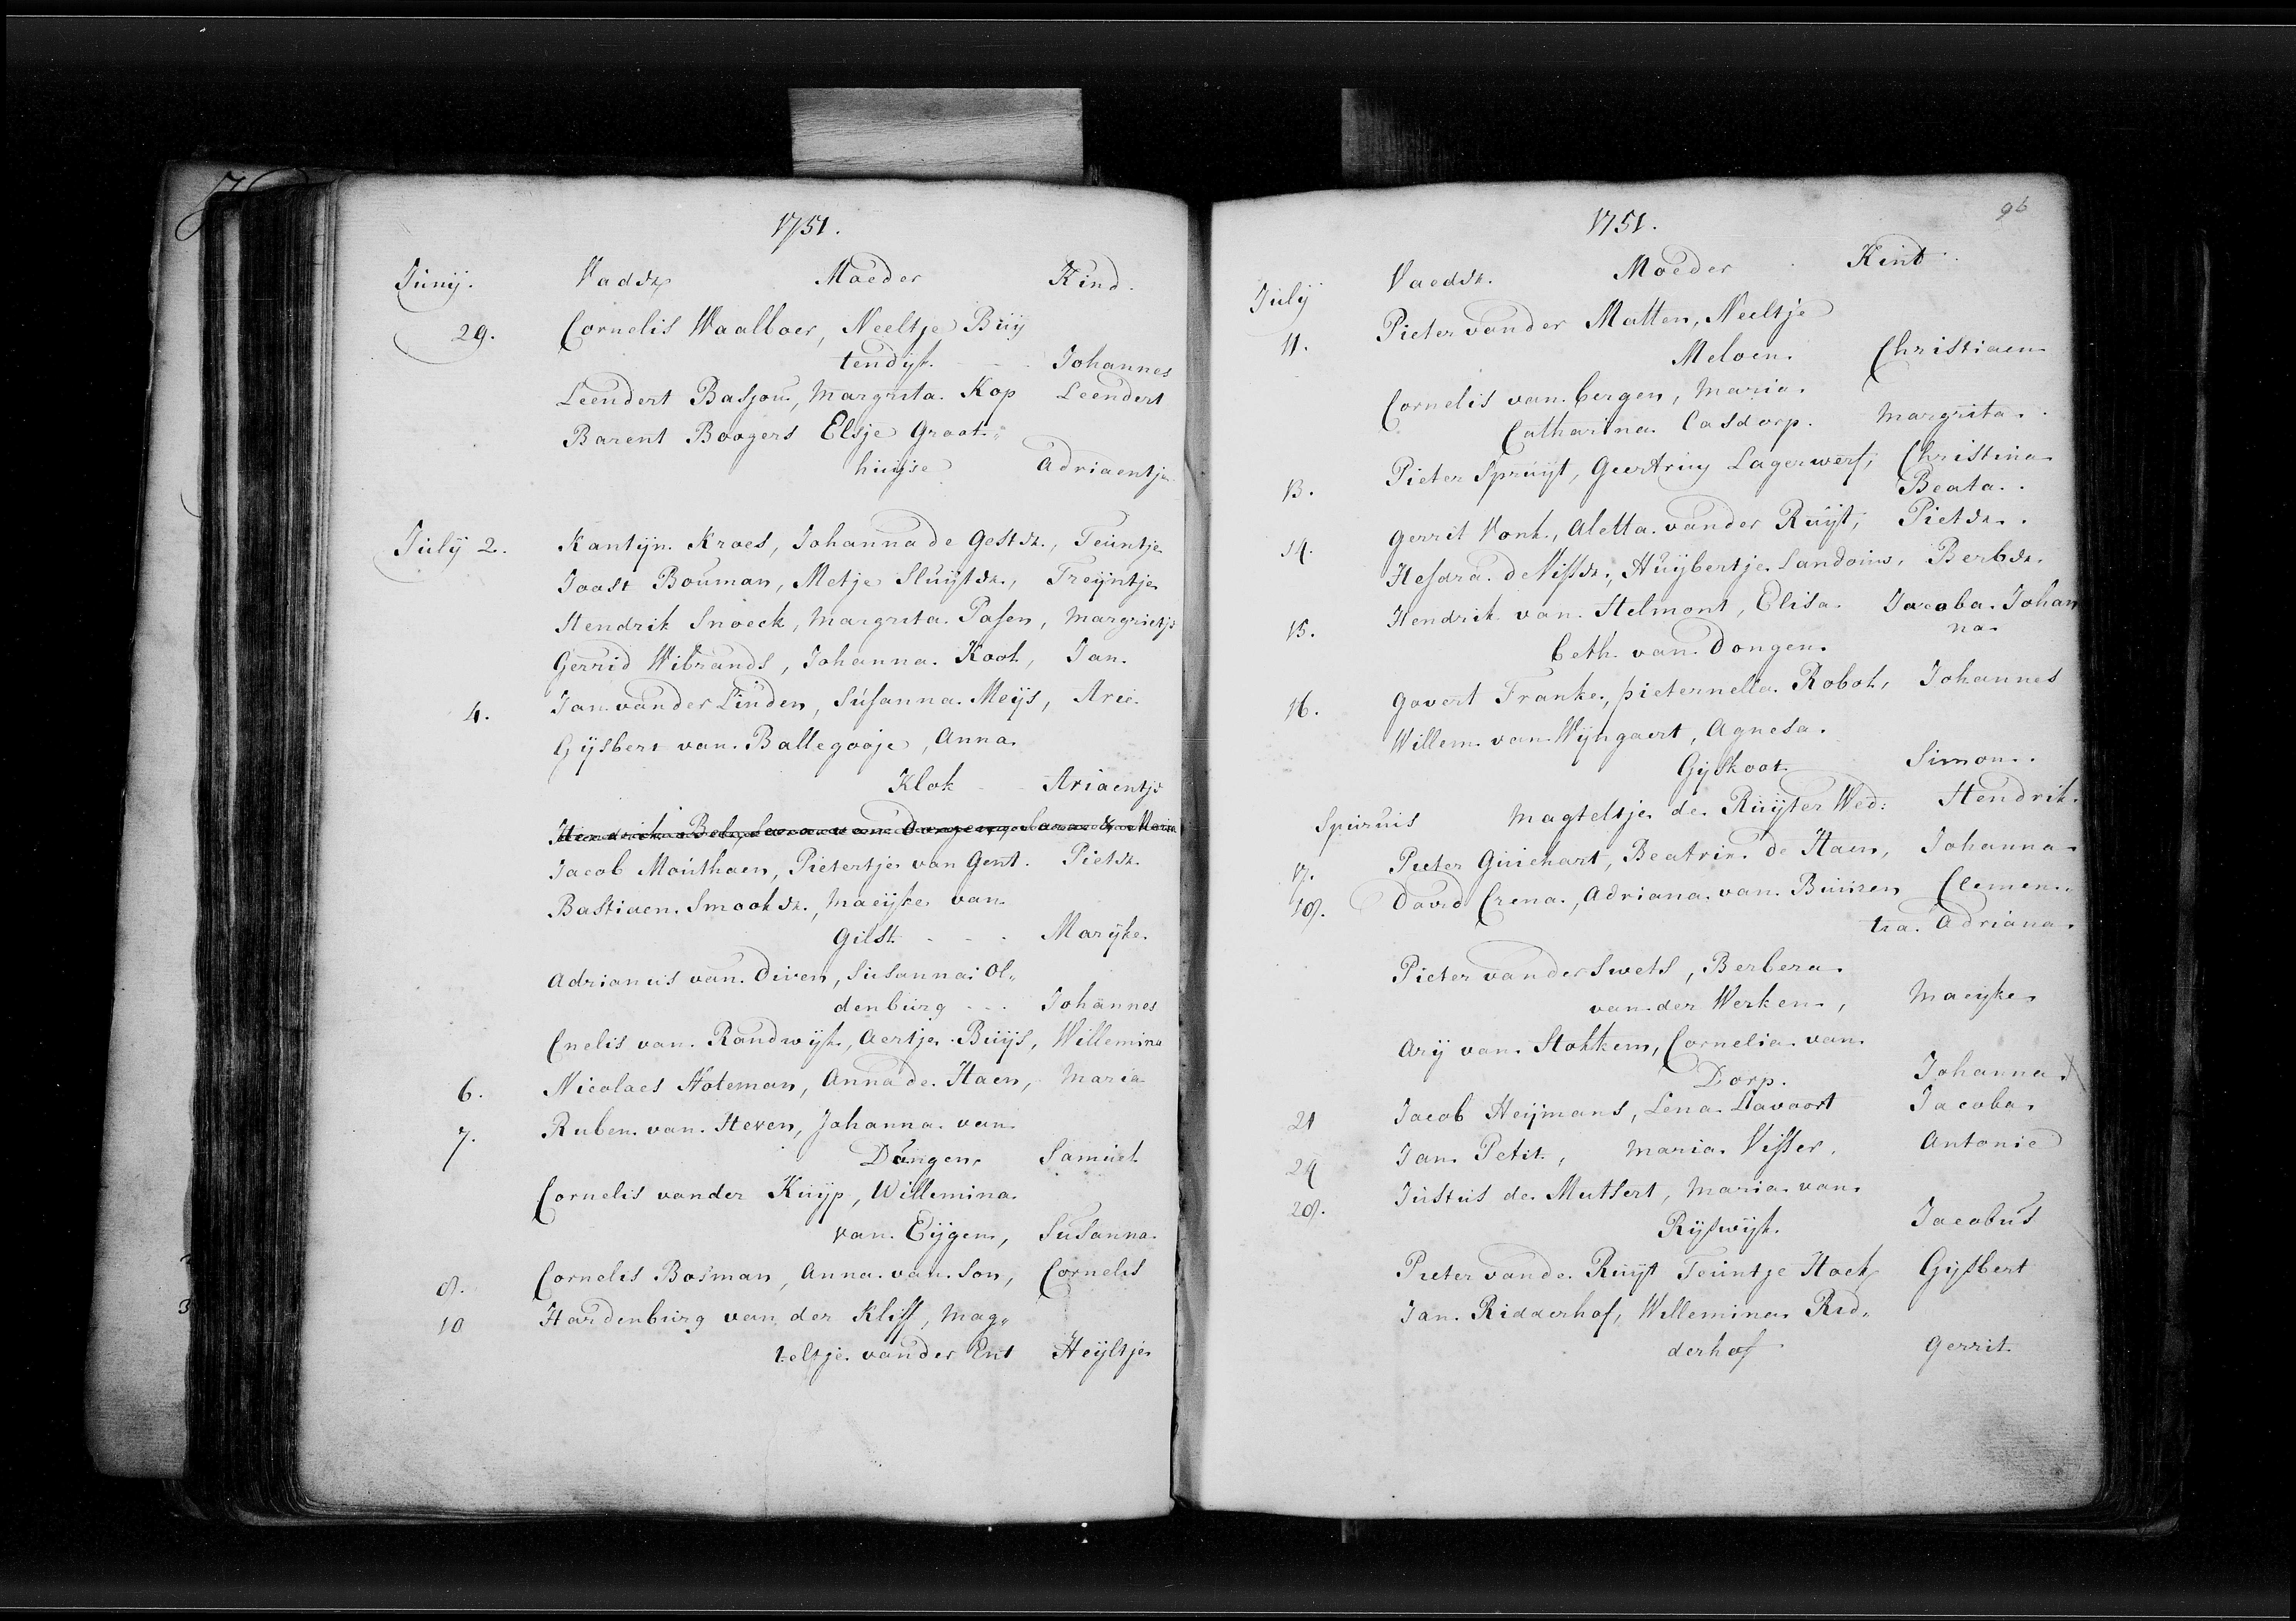 1751.
Junij. Vader Moeder Kind.
29. Cornelis Waalboer, Neeltje Buij
tendijk. - - . Johannes
Leendert Basjou, Margrita Kop Leendert
Barent Boogers Elsje Groot„
huijse Adriaentje
Julij 2. Kantijn Kroes, Johanna de Gester, Teuntje
Joost Bouman, Metje Sluijter, Treijntje
Hendrik Snoeck, Margrita Pasen, Margrietje
Gerrid Wibrands, Johanna Kook, Jan.
4. Jan vander Linden, Susanna Meijs, Arie.
Gijsbert van Ballegooje, Anna
Klok - Ariaentje
Jacob Mouthaen, Pietertje van Gent. Pieter
Bastiaen Smookder, Maeijke van
Gilst. - - . Marijke.
Adrianus van Diven, Susanna Ol„
denburg - - . Johannes
Cnelis van Randwijk, Aertje Buijs, Willemina
6. Nicolaes Noteman, Anna de Haen, Maria
7. Ruben van Steven, Johanna van
Dongen, Samuel
Cornelis vander Kuijp, Willemina
van Eijgen, Susanna.
8. Cornelis Bosman, Anna van Son, Cornelis
10 Hardenburg van der Kliff, Mag„
teltje vander Ent Heijltje
1751. 96
Vaeder. Moeder Kint.
Julij
11. Pieter vander Matten, Neeltje
Meloen. Christiaen
Cornelis van Bergen, Maria
Catharina Casdorp. Margrita.
13. Pieter Spruijt, Geertruij Lagerwerf, Christina
Beata.
14. Gerrit Vonk, Aletta vander Ruijt, Pieter.
Hesdra de Visser, Huijbertje Sandoius, Berber.
15. Hendrik van Helmont, Elisa Jacoba Johan
beth van Dongen. na
16. Govert Franke, Pieternella Robol, Johannes
Willem van Wijngaert, Agnesa
Gijskoot Simon.
Spuruis Magteltje de Ruijter Wed: Hendrik.
17. Pieter Guichart, Beatrix de Haen, Johanna
18. David Crena, Adriana van Buuren Clemen„
tia Adriana.
Pieter vander Swets, Berbera
van der Werken, Maeijke
Arij van Stokkem, Cornelia van
Dorp. Johanna
21 Jacob Heijmans, Lena Havoort Jacoba
24 Jan Petit, Maria Visser, Antonie
28. Justus de Mutsert, Maria van
Rijswijk. Jacobus
Pieter vande Ruijt Teuntje Hoek Gijsbert
Jan Ridderhof, Willemina Rid„
derhof Gerrit